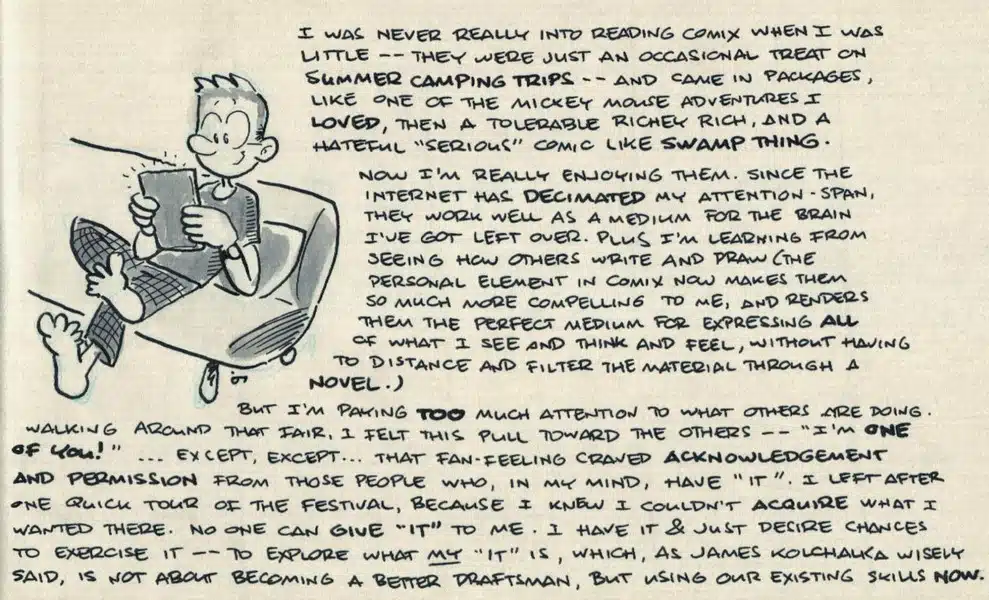 I WAS NEVER REALLY INTO READING COMIX WHEN I WAS
LITTLE -- THEY WERE JUST AN OCCASIONAL TREAT ON
SUMMER CAMPING TRIPS -- AND CAME IN PACKAGES,
LIKE ONE OF THE MICKEY MOUSE ADVENTURES I
LOVED, THEN A TOLERABLE RICHEY RICH, AND A
HATEFUL "SERIOUS" COMIC LIKE SWAMP THING.
NOW I'M REALLY ENJOYING THEM. SINCE THE
INTERNET HAS DECIMATED MY ATTENTION-SPAN,
THEY WORK WELL AS A MEDIUM FOR THE BRAIN
I'VE GOT LEFT OVER. PLUS I'M LEARNING FROM
SEEING HOW OTHERS WRITE AND DRAW (THE
PERSONAL ELEMENT IN COMIX NOW MAKES THEM
SO MUCH MORE COMPELLING TO ME, AND RENDERS
THEM THE PERFECT MEDIUM FOR EXPRESSING ALL
OF WHAT I SEE AND THINK AND FEEL, WITHOUT HAVING
TO DISTANCE AND FILTER THE MATERIAL THROUGH A
NOVEL.)
BUT I'M PAYING TOO MUCH ATTENTION TO WHAT OTHERS ARE DOING.
WALKING AROUND THAT FAIR, I FELT THIS PULL TOWARD THE OTHERS -- "I'M ONE
OF YOU!" ... EXCEPT, EXCEPT... THAT FAN-FEELING CRAVED ACKNOWLEDGEMENT
AND PERMISSION FROM THOSE PEOPLE WHO, IN MY MIND, HAVE "IT". I LEFT AFTER
ONE QUICK TOUR OF THE FESTIVAL, BECAUSE I KNEW I COULDN'T ACQUIRE WHAT I
WANTED THERE. NO ONE CAN GIVE "IT" TO ME. I HAVE IT & JUST DESIRE CHANCES
TO EXERCISE IT -- TO EXPLORE WHAT MY "IT" IS, WHICH, AS JAMES KOLCHALKA WISELY
SAID, IS NOT ABOUT BECOMING A BETTER DRAFTSMAN, BUT USING OUR EXISTING SKILLS NOW.